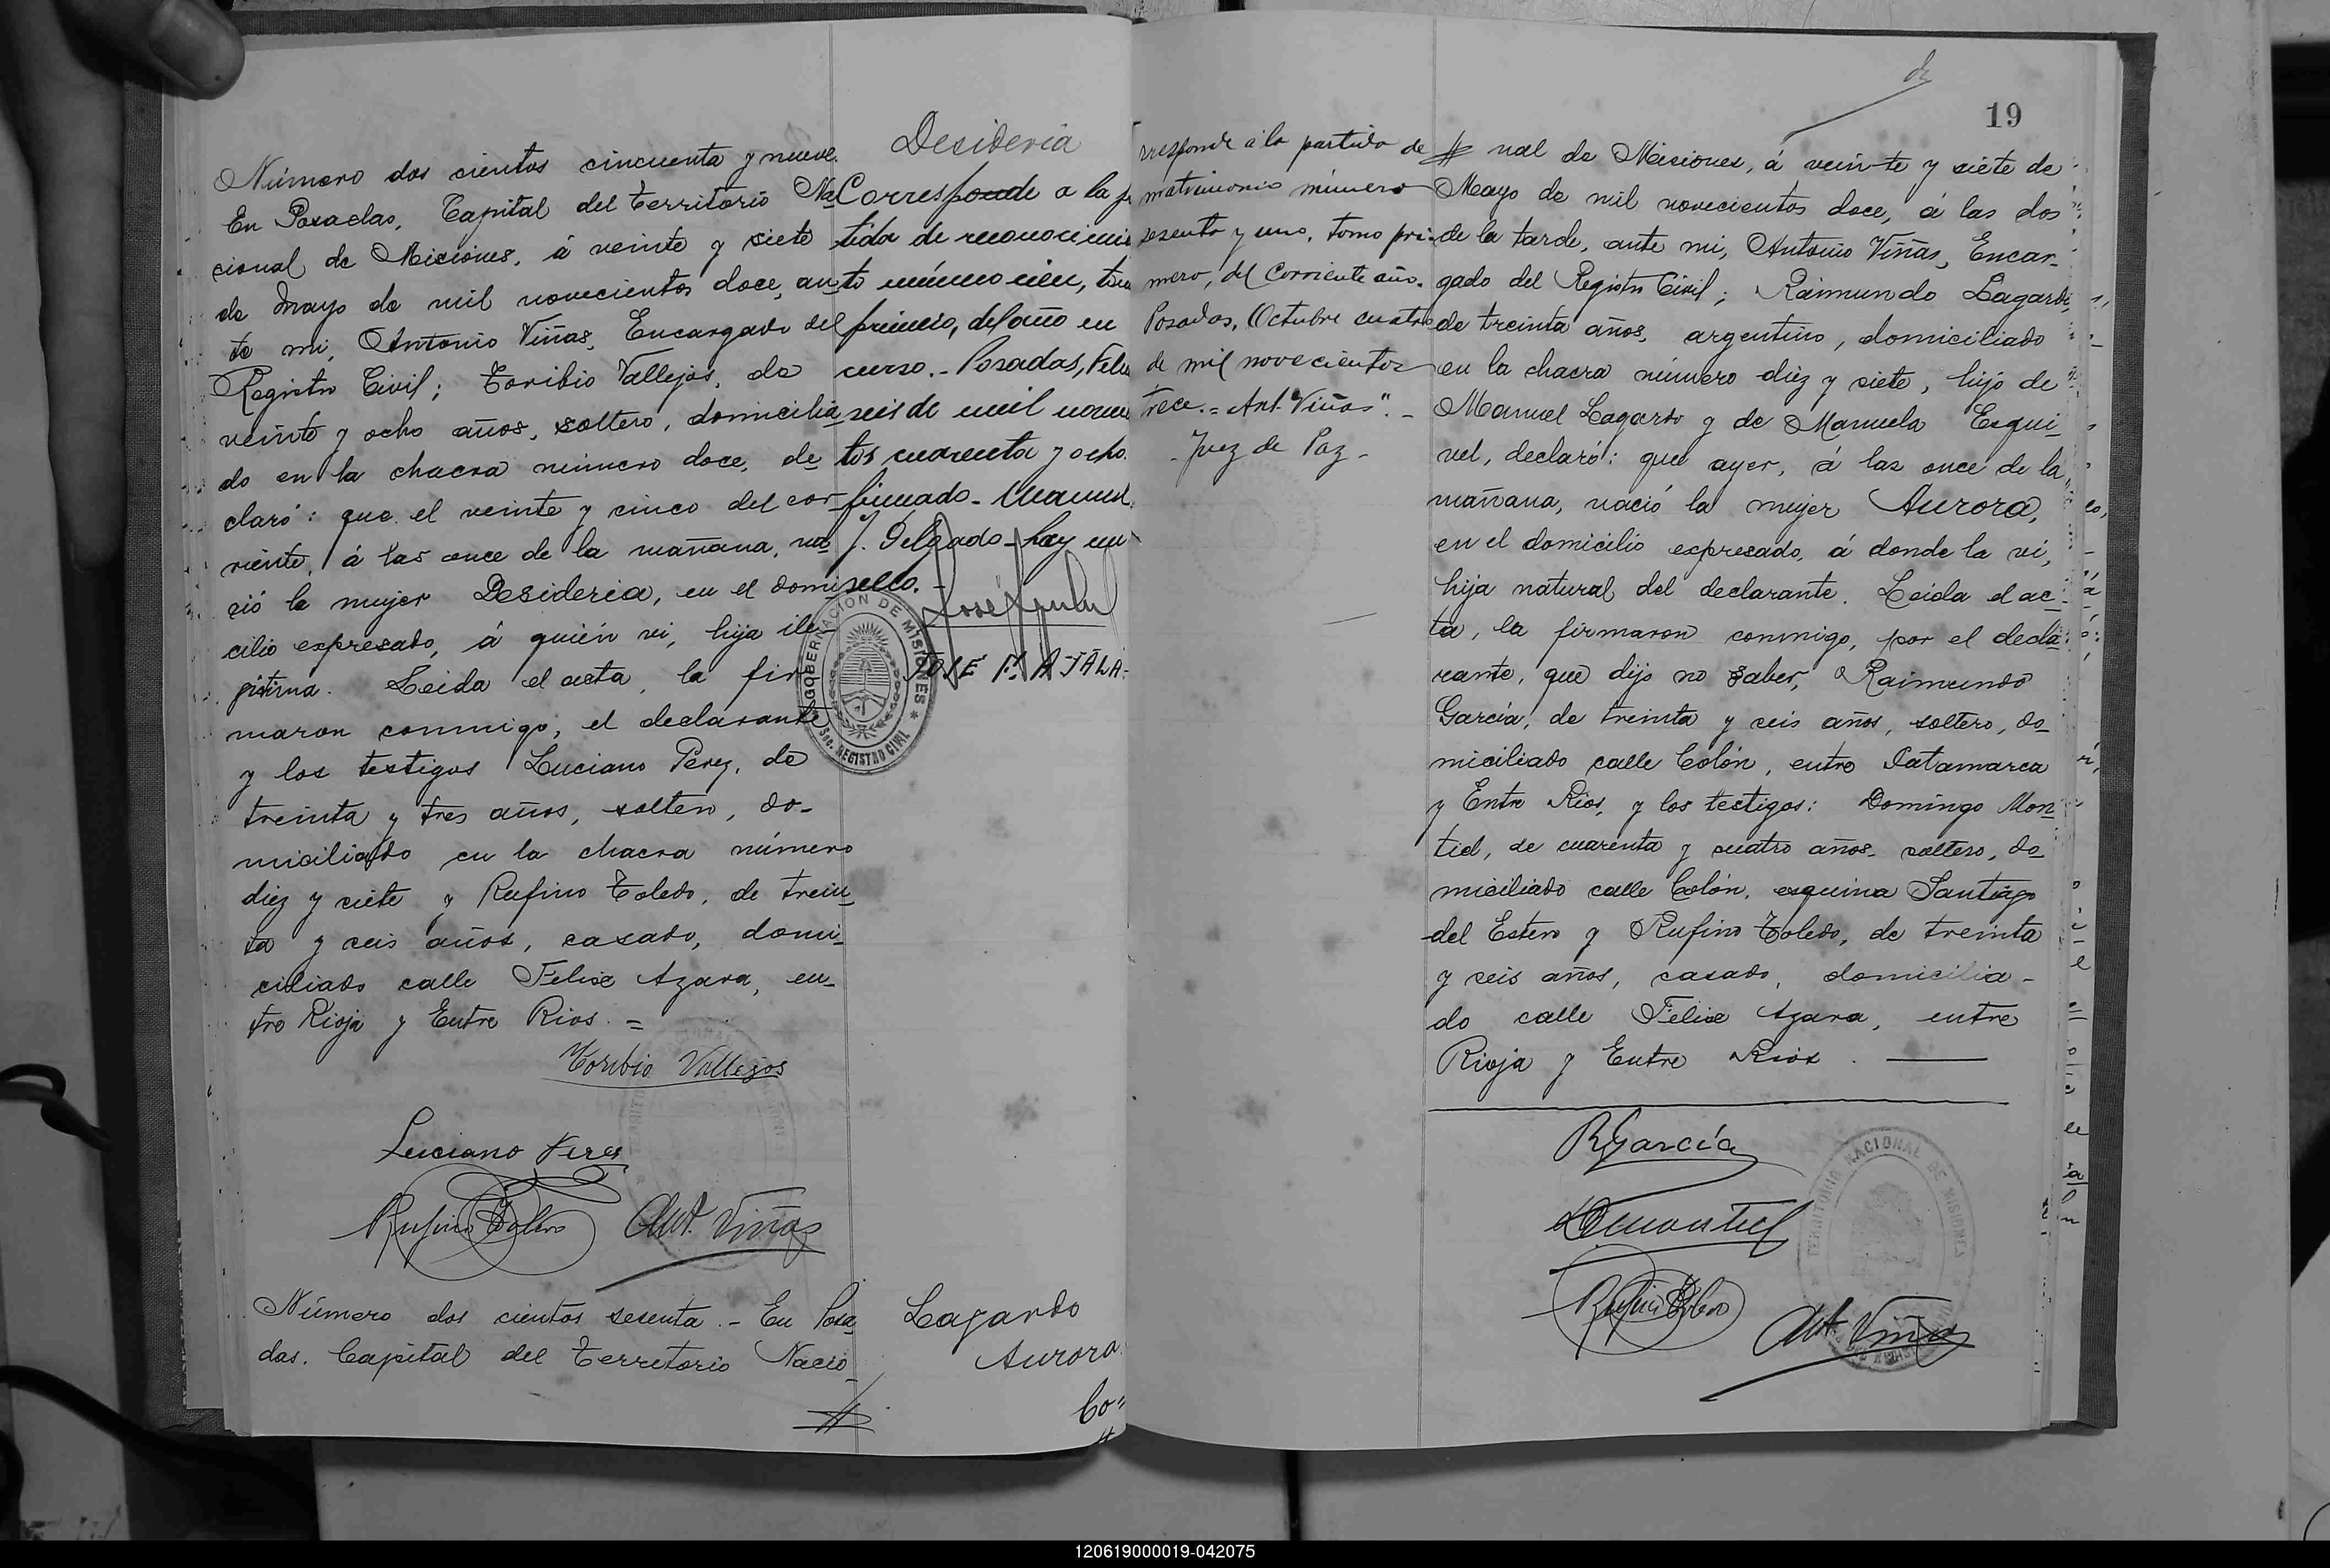 Número dos cientos cincuenta y nueve.
En Posadas, Capital del Territorio Na
cional de Misiones, á veinte y siete
de Mayo de mil novecientos doce, an
te mi, Antonio Viñas, Encargado del
Registro Civil; Toribio Vallejos, de
veinte y ocho años, soltero, domicilia
do en la chacra número doce, de
claró: que el veinte y cinco del cor
riente, á las once de la mañana, na
ció la mujer Desideria, en el domi
cilio expresado, á quién vi, hija ile
gitima. Leida el acta, la fir
maron conmigo, el declarante
y los testigos Luciano Perez, de
treinta y tres años, soltero, do-
miciliado en la chacra número
diez y siete y Rufino Toledo, de trein
ta y seis años, casado, domi
ciliado calle Felix Azara, en
tre Rioja y Entre Rios. =
Toribio Vallejos
Luciano Perez
Rufino Toledo Ant. Viñas
Desideria
Corresponde a la
tida de reconocimie
to número cien, tomo
primero, del año en
curso. - Posadas,
seis de mil nove
tos cuarenta y ocho.
firmado - Manuel
J. Delgado - hay un
sello. -
GOBERNACION DE MISIONES
Sec. REGISTRO CIVIL
JOSE F. AYALA
Número dos cientos sesenta. - En Posa
das, Capital del Territorio Nacio
Lagardo
Aurora.
Co=
rresponde á la partida de
matrimonio número
sesenta y uno, tomo pri-
mero, del corriente año.
Posadas, Octubre cuatro
de mil novecientos
trece. = Ant. Viñas". -
- Juez de Paz -
19
nal de Misiones, á veinte y siete de
Mayo de mil novecientos doce, á las dos
de la tarde, ante mi, Antonio Viñas, Encar-
gado del Registro Civil; Raimundo Lagardo,
de treinta años, argentino, domiciliado
en la chacra número diez y siete, hijo de
Manuel Lagardo y de Manuela Esqui
vel, declaró: que ayer, á las once de la
mañana, nació la mujer Aurora,
en el domicilio expresado, á donde la vi,
hija natural del declarante. Leida el ac
ta, la firmaron conmigo, por el decla
rante, que dijo no saber, Raimundo
García, de treinta y seis años, soltero, do
miciliado calle Colón, entre Catamarca
y Entre Rios, y los testigos: Domingo Mon
tiel, de cuarenta y cuatro años, soltero, do
miciliado calle Colón, esquina Santiago
del Estero y Rufino Toledo, de treinta
y seis años, casado, domicilia-
do calle Felix Azara, entre
Rioja y Entre Rios.
RGarcía
DMontiel
Rufino Toledo
Ant. Viñas
TERRITORIO NACIONAL DE MISIONES
120619000019-042075